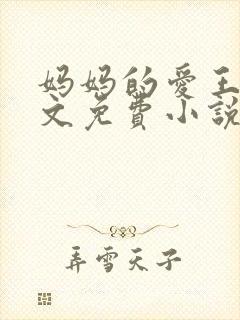 妈妈的爱王
文免费小说
弄雪天子